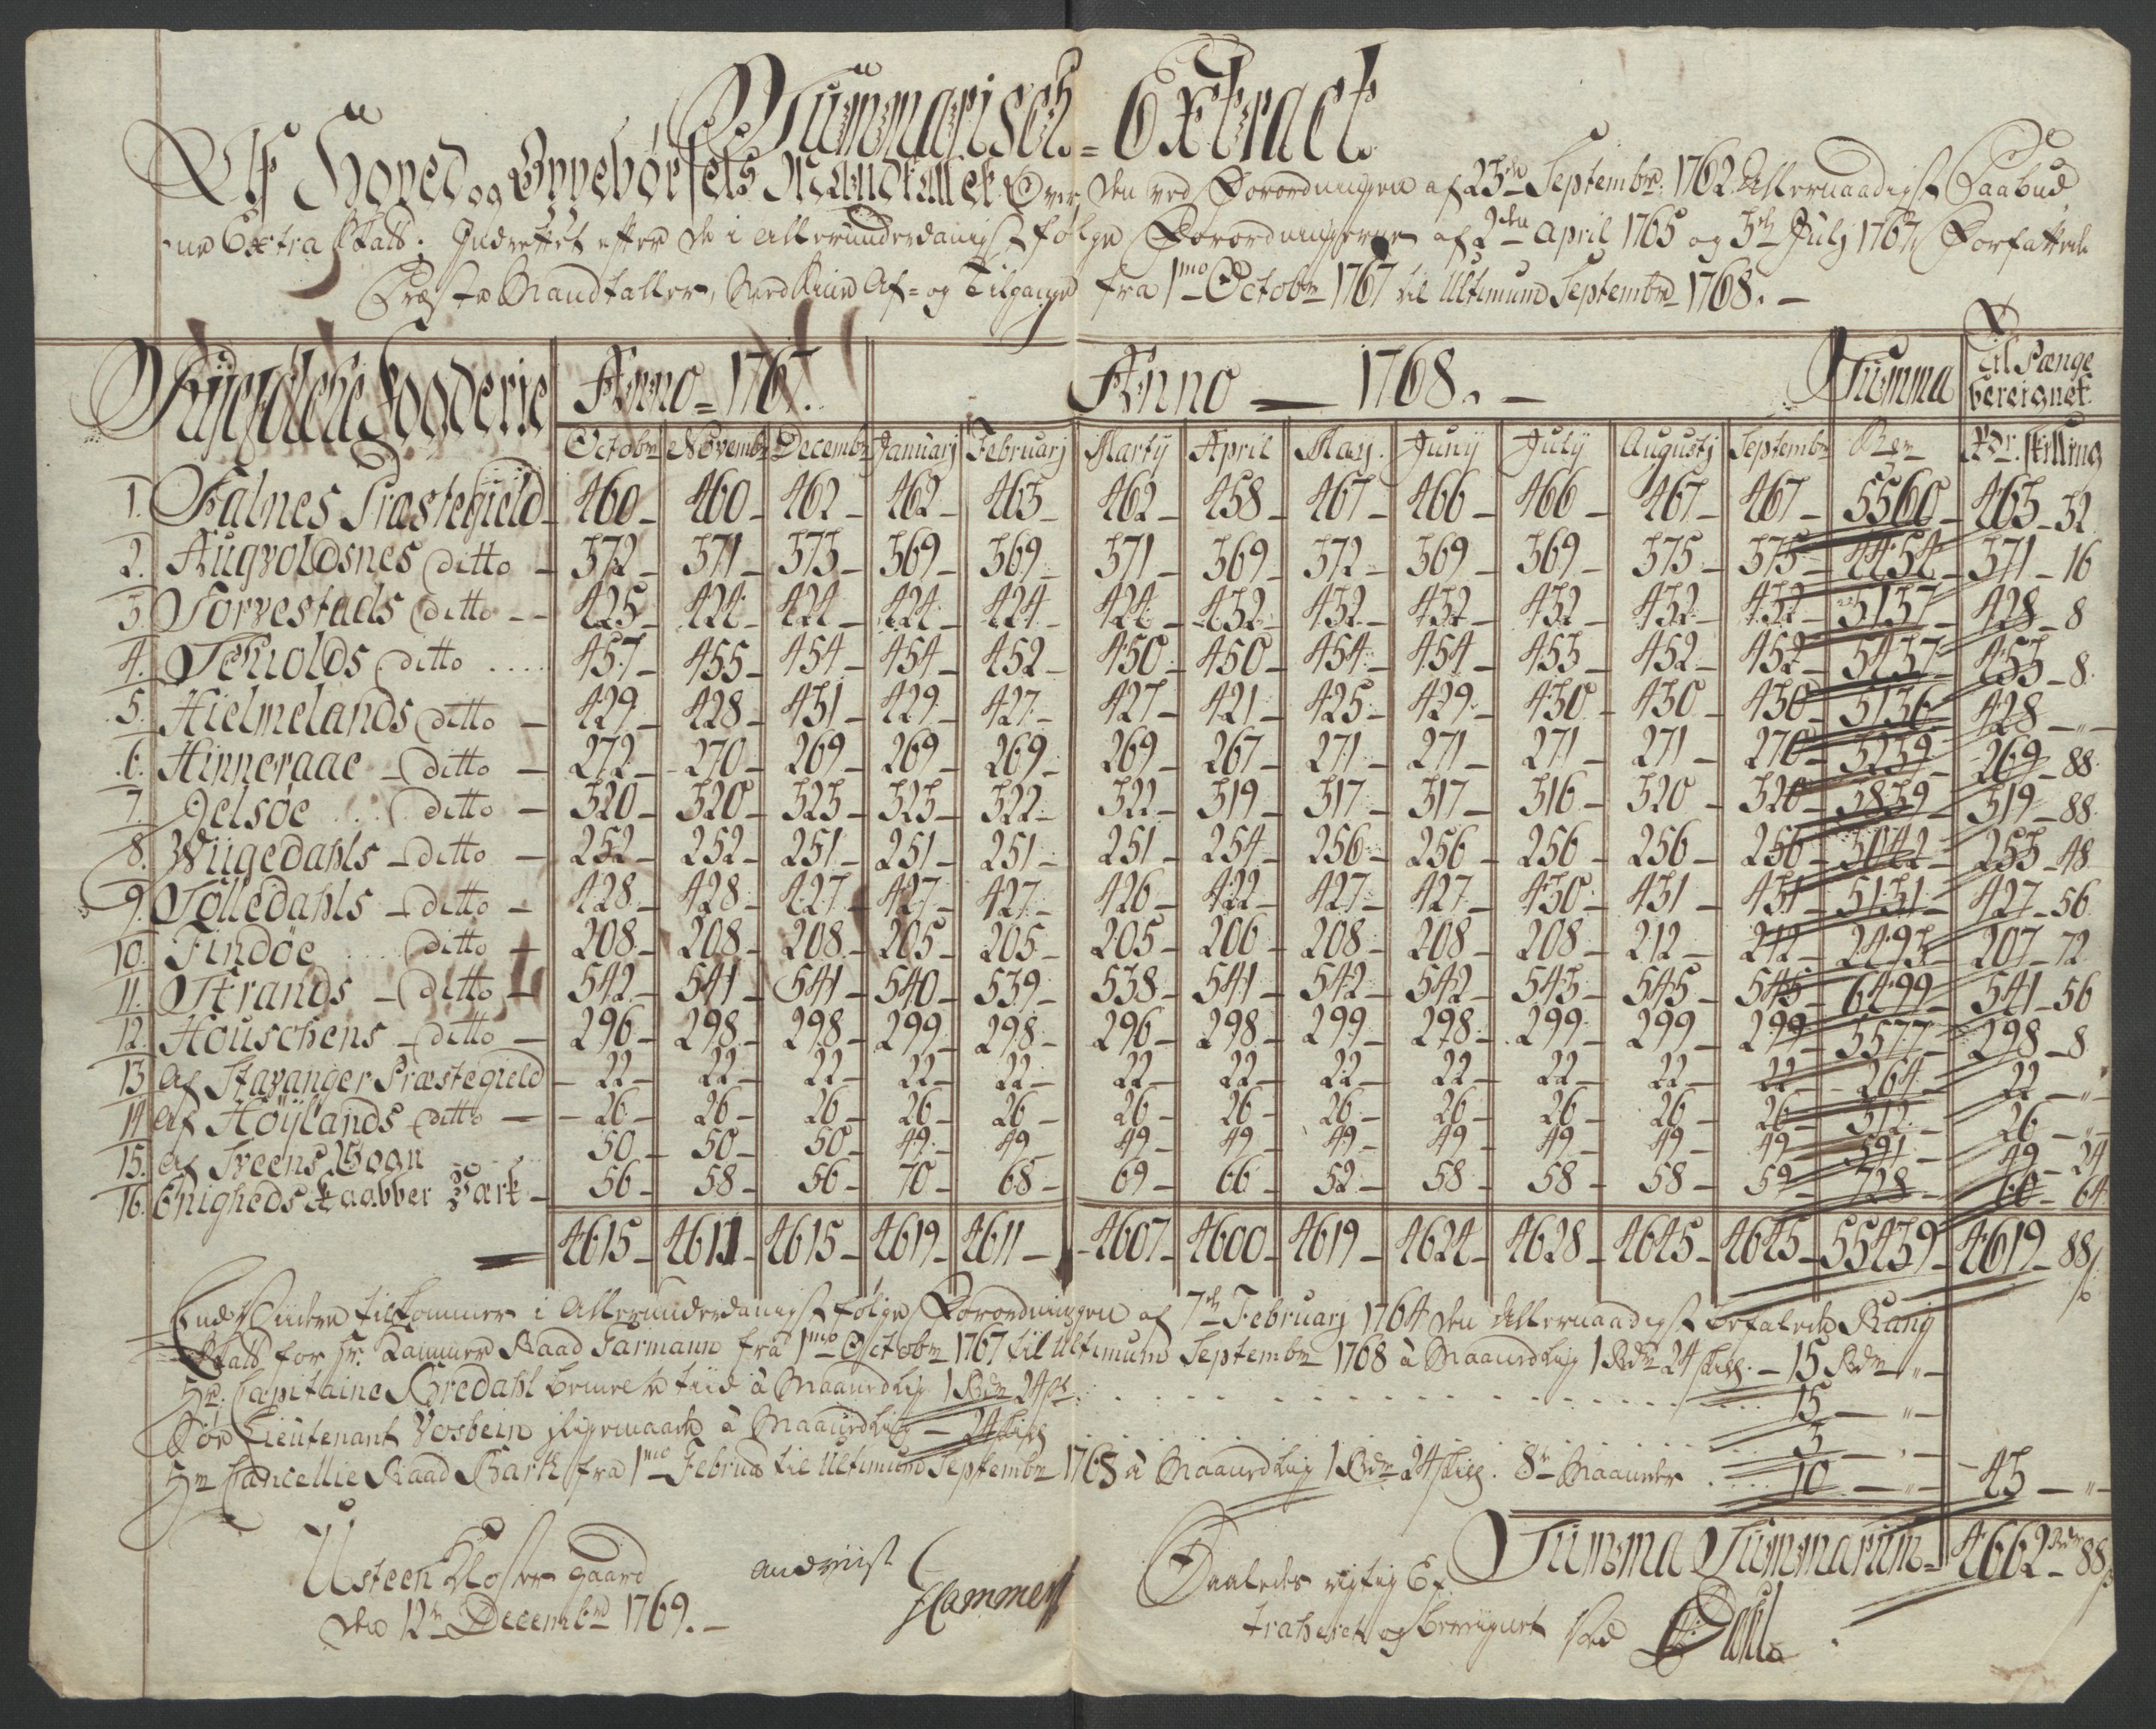 Summarisch = Extract
Af Hoved og Qvvehørsels Mandtallet Over den ved Forordningen af 23de Septembr: 1762 Allernaadigst Paabud
ne Extra Skatt; Indrettet efter de i Allerunderdanigst følge Forordningerne af 2den April 1765 og 3de Julj 1767 Forfattede
Præste Mandtaller, Med Sine Af= og Tilgange fra 1mo Octobr 1767 til Ultimum Septembr 1768. —
Ryefylche Fogderie Anno = 1767. Anno — 1768. — Summa Til Pænge bereignet
Octobr Novembr Decembr Januarj Februarj Martij April Maij. Junij Julij Augustj Septembr Rdr. skilling
1. Falnes Præstegield 460 460 462 462 463 462 458 467 466 466 467 467 5560 463 32
2. Augvoldsnes ditto 372 371 373 369 369 371 369 372 369 369 375 375 4454 371 16
3. Torvestads ditto 425 424 424 424 424 424 432 432 432 432 432 432 5137 428 8
4. Schiolds ditto 457 455 454 454 452 450 450 454 454 453 452 452 5437 453 8
5. Hielmelands ditto 429 428 431 429 427 427 421 425 429 430 430 430 5136 428 „
6. Hinneraae ditto 272 270 269 269 269 269 267 271 271 271 271 270 3239 269 88
7. Jelsøe ditto 320 320 323 323 322 322 319 317 317 316 320 320 3839 319 88
8. Wiigedahls ditto 252 252 251 251 251 251 254 256 256 256 256 256 3042 253 48
9. Søledahls ditto 428 428 427 427 427 426 422 427 427 430 431 431 5131 427 56
10. Findøe ditto 208 208 208 205 205 205 206 208 208 208 212 212 2493 207 72
11. Strands ditto 542 541 541 540 539 538 541 542 542 543 545 545 6499 541 56
12. Houschens ditto 296 298 298 299 298 296 298 299 298 299 299 299 3577 298 8
13 Af Stavanger Præstegield 22 22 22 22 22 22 22 22 22 22 22 22 264 22 „
14 Af Höÿlands ditto 26 26 26 26 26 26 26 26 26 26 26 26 312 26 „
15. Af Sveens Sogn 50 50 50 49 49 49 49 49 49 49 49 49 591 49 24
16. Enigheds Kaabber Værk 56 58 56 70 68 69 66 52 58 58 58 59 728 60 64
4615 4611 4615 4619 4611 4607 4600 4619 4624 4628 4645 4645 55439 4619 88 ß
Endvidere tilkommer i Allerunderdanigst følge Forordningen af 7de Februarj 1764 den Allernaadigst befalede Rang
Skatt for Hr. Kammer Raad Tarmann fra 1mo Octobr 1767 til Ultimum Septembr 1768 à Maanedlig 1 Rdr 24 skill. — 15 Rdr „
Hr. Capitaine Bredahl bemelte tiid à Maanedlig 1 Rdr 24 sk: 15 — „
For Lieutenant Vosbein ligemaade à Maanedlig — 24 skill 3 — „
Hr Cancellie Raad Bark fra 1mo Februa til Ultimum Septembr 1768 à Maanedlig 1 Rdr 24 skill. 8te Maaneder 10 — „ 43 — „
Summa Summarum 4662 Rdr 88 ß
Utsteen Kloster gaard
den 12te Decembr 1769. —
Hammer
Saaledes rigtig Ex
traheret og beregnet